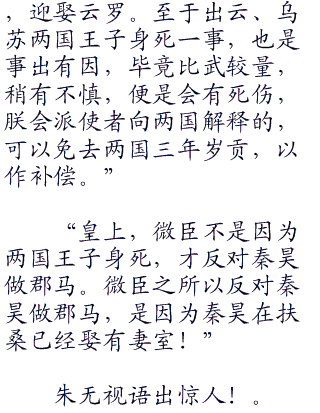 ，迎娶云罗。至于出云、乌
苏两国王子身死一事，也是
事出有因，毕竟比武较量，
稍有不慎，便是会有死伤，
朕会派使者向两国解释的，
可以免去两国三年岁贡，以
作补偿。”
“皇上，微臣不是因为
两国王子身死，才反对秦昊
做郡马。微臣之所以反对秦
昊做郡马，是因为秦昊在扶
桑已经娶有妻室！”
朱无视语出惊人！。